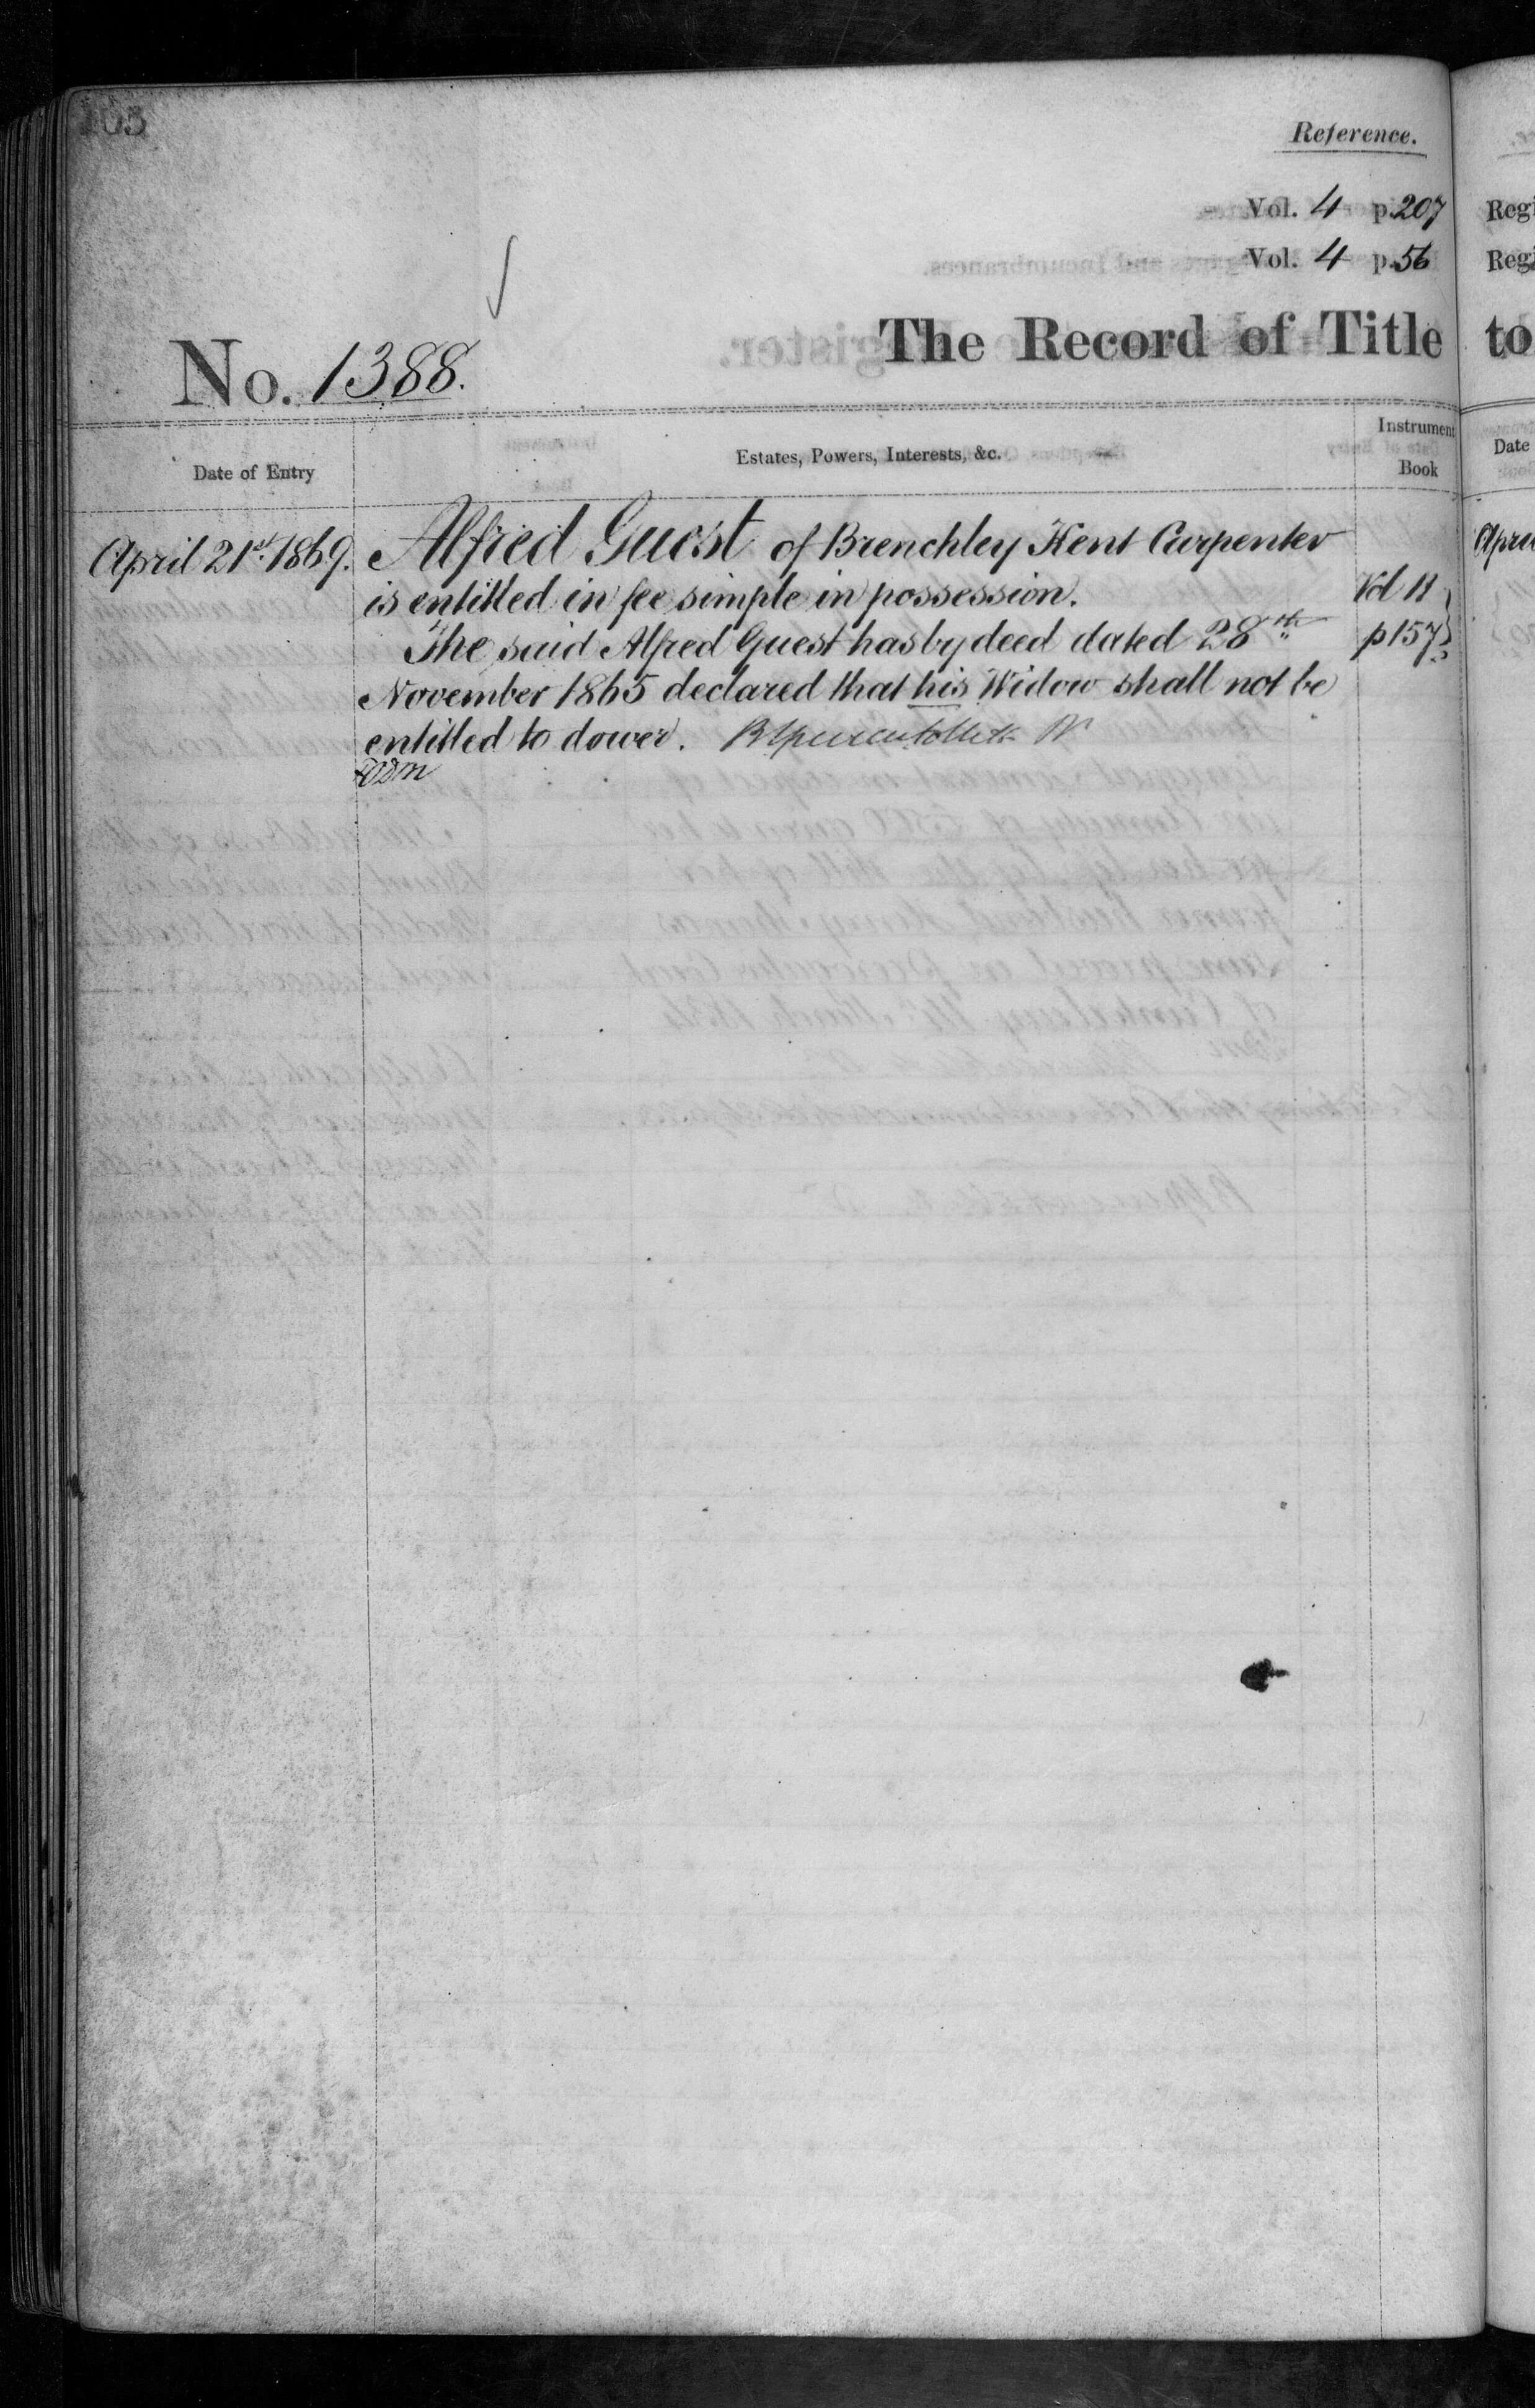 103
Reference.
Vol. 4 p. 207 Regi
Vol. 4 p. 56 Regi
The Record of Title to
No. 1388.
Date of Entry
Estates, Powers, Interests, &c.
Instrument
Book
Date
April 21st 1869. Alfred Guest of Brenchley Kent Carpenter
is entitled in fee simple in possession. Vol 11
The said Alfred Guest has by deed dated 28th p 157
November 1865 declared that his Widow shall not be
entitled to dower.